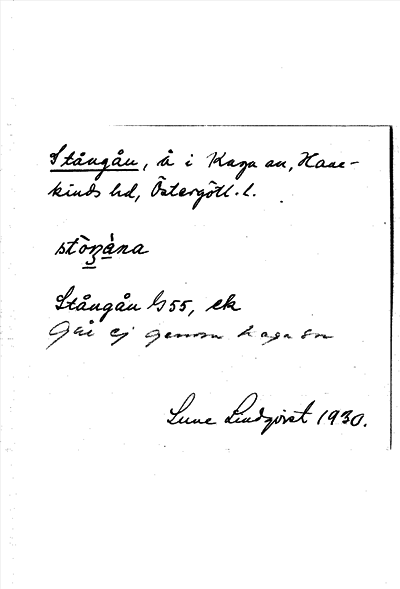 Stångån, å i Kaga sn, Hane-
kinds hd, Östergötl. l.
stòŋána
Stångån G 55, ek
Går ej genom Kaga sn
Sune Lindqvist 1930.